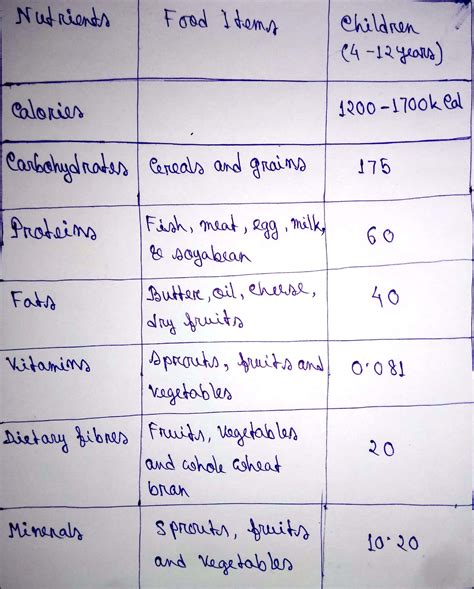 Nutrients Food Items Children
(4-12 years)
Calories 1200-1700k Cal
Carbohydrates Cereals and grains 175
Proteins Fish, meat, egg, milk, 60
& soyabean
Fats Butter, oil, cheese, 40
dry fruits
Vitamins Sprouts, fruits and 0.081
vegetables
Dietary fibres Fruits, vegetables 20
and whole wheat
bran
Minerals Sprouts, fruits 10.20
and vegetables